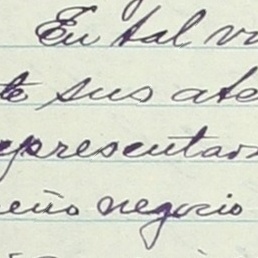 En tal v
te sus ate
epresentad
eño negocio